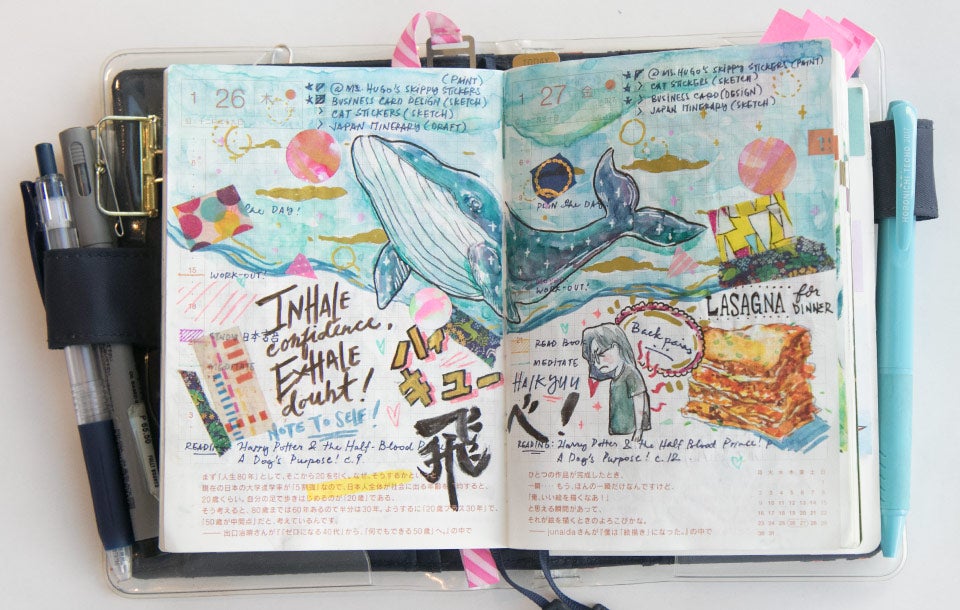 1 26 木
(PAINT)
@MS. HUGO'S SKIPPY STICKERS
BUSINESS CARD DESIGN (SKETCH)
> CAT STICKERS (SKETCH)
> JAPAN ITINERARY (DRAFT)
the DAY!
15 WORK-OUT!
STUDY 日本語
INHALE
confidence,
EXHALE
doubt!
NOTE TO SELF!
ハイ
キュー
飛べ!
READING: Harry Potter & the Half-Blood
A Dog's Purpose! c.9
まず「人生80年」として、そこから20を引く。なぜ、そうするかと
現在の日本の大学進学率が「5割強」なので、日本人全体が社会に出る年齢を すると、
20歳くらい。自分の足で歩きはじめるのが「20歳」である。
そう考えると、80歳までは60年あるので半分は30年。ようするに「20歳 30年」で、
「50歳が中間点」だと、考えているんです。
—— 出口治明さんが『「ゼロになる40代」から、「何でもできる50歳」へ。』の中で
TODAY
1 27 金
@MS. HUGO'S SKIPPY STICKERS (PAINT)
> CAT STICKERS (SKETCH)
> BUSINESS CARD (DESIGN)
> JAPAN ITINERARY (SKETCH)
PLAN the DAY!
WORK-OUT!
READ BOOK
MEDITATE
HAIKYUU
Back pains
LASAGNA for
DINNER
READING: Harry Potter & the Half Blood Prince!
A Dog's Purpose! c.12
ひとつの作品が完成したとき、
一瞬……もう、ほんの一瞬だけなんですけど、
「俺、いい絵を描くなあ!」
と思える瞬間があって、
それが絵を描くときのよろこびかな。
—— junaidaさんが『僕は「絵描き」になった。』の中で
月 火 水 木 金 土 日
1
2 3 4 5 6 7 8
9 10 11 12 13 14 15
16 17 18 19 20 21 22
23 24 25 26 27 28 29
30 31
HOBONICHI TECHO 2017